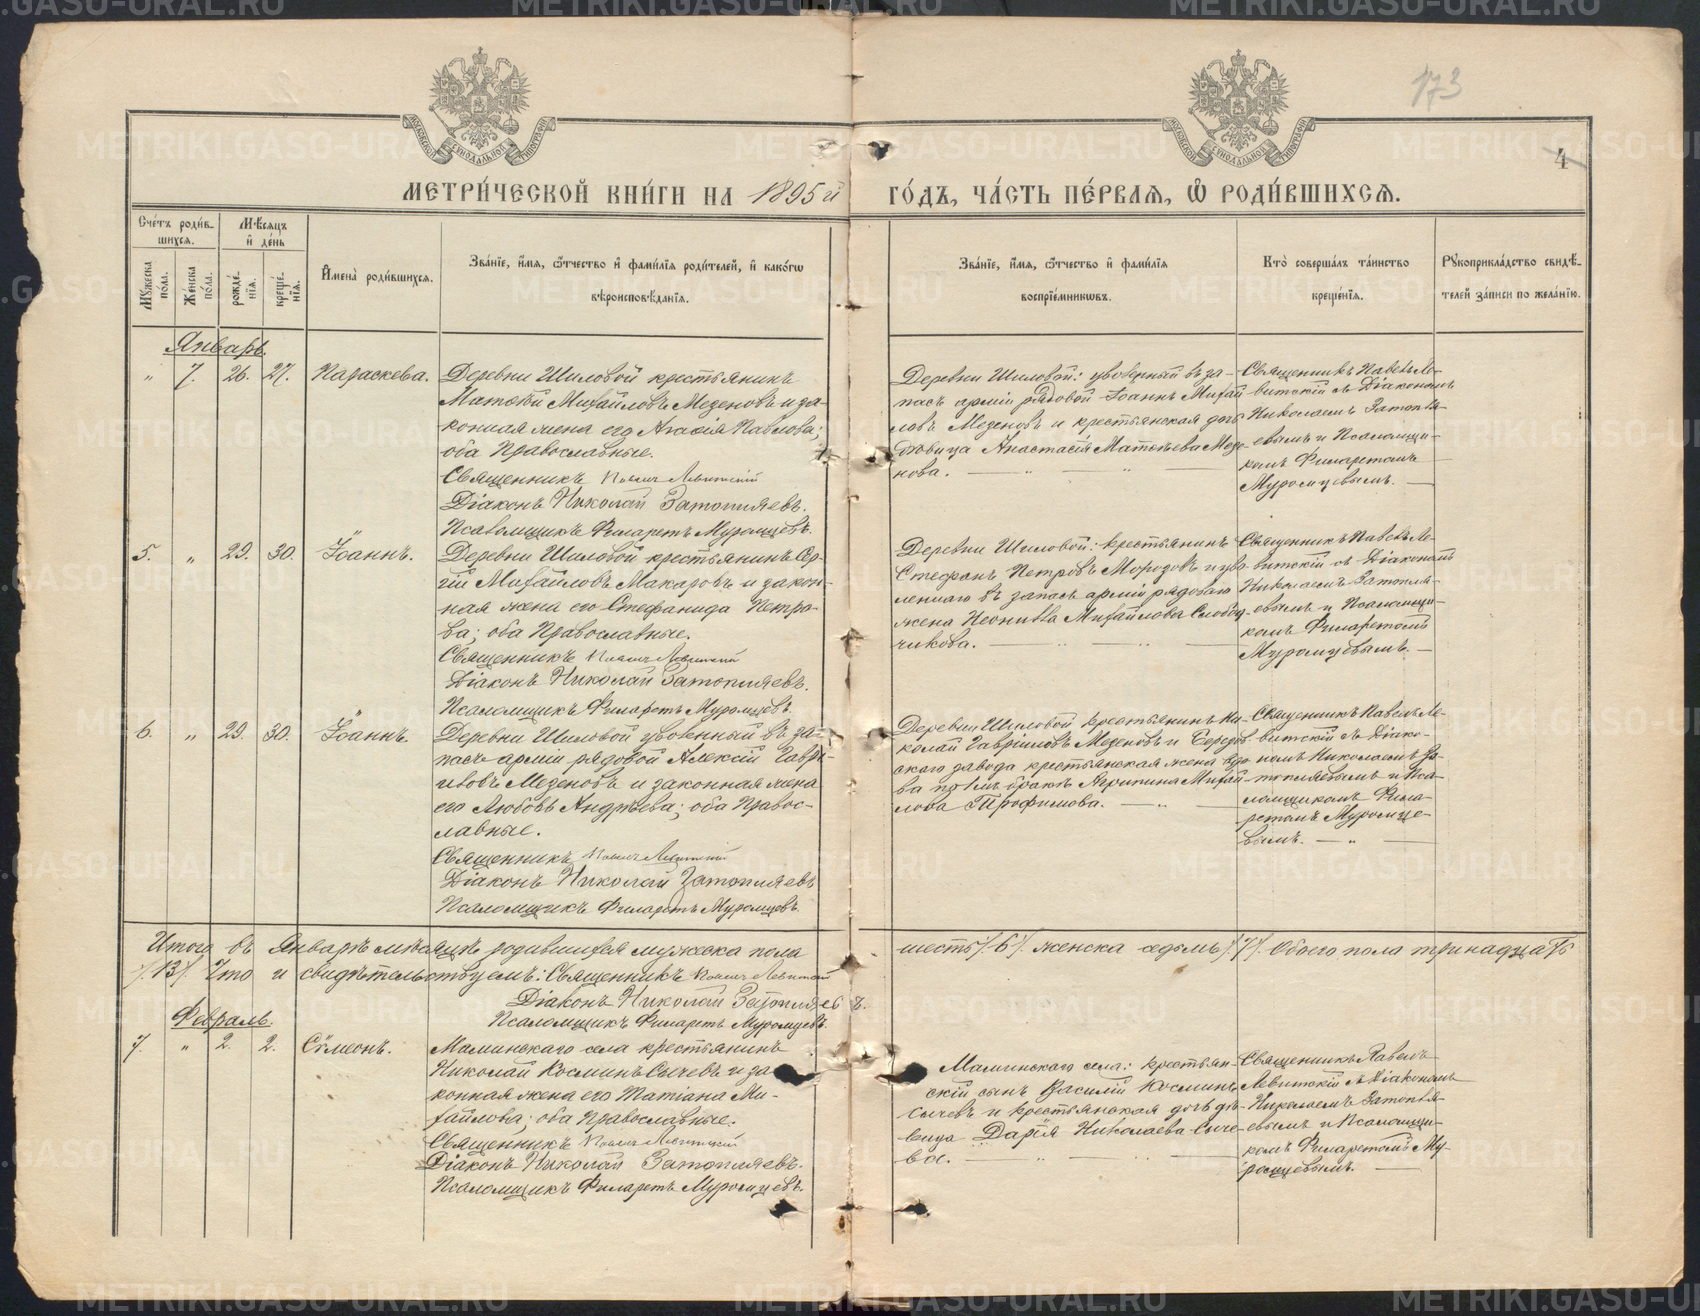 173
4
МОСКОВСКОЙ СѴНОДАЛЬНОЙ ТИПОГРАФІИ
МОСКОВСКОЙ СѴНОДАЛЬНОЙ ТИПОГРАФІИ
МЕТРИ́ЧЕСКОЙ КНИ́ГИ НА 1895й ГО́ДЪ, ЧА́СТЬ ПЕ́РВАЯ, Ѡ РОДИ́ВШИХСЯ.
Счетъ роди́в-
шихся.
Мѣ́сяцъ
и҆ де́нь
Мꙋжеска по́ла.
Же́нска по́ла.
рожде́нїя.
креще́нїя.
И҆мена̀ роди́вшихся.
Зва́нїе, и҆́мя, ѻ҆́тчество и҆ фами́лїя роди́телей, и҆ како́гѡ
вѣроисповѣ́данїя.
Зва́нїе, и҆́мя, ѻ҆́тчество и҆ фами́лїя
воспрїе́мникѡвъ.
Кто̀ соверша́лъ та́инство
креще́нїя.
Рꙋкоприкла́дство свидѣ́-
телей за́писи по жела́нїю.
Январь.
" 7. 26. 27. Параскева.
Деревни Шиловой крестьянинъ
Матѳій Михайловъ Мезеновъ и за-
конная жена его Агафія Павлова;
оба Православные.
Священникъ Павелъ Левитскій
Діаконъ Николай Затопляевъ.
Псаломщикъ Филаретъ Муромцевъ.
Деревни Шиловой: уволенный въ за-
пасъ арміи рядовой Іоаннъ Михай
ловъ Мезеновъ и крестьянская дочь
дѣвица Анастасія Матѳѣева Мезе-
нова. — " — " —
Священникъ Павелъ Ле-
витскій съ Діакономъ
Николаемъ Затопля-
евымъ и Псаломщи-
комъ Филаретомъ
Муромцевымъ. —
5. " 29. 30. Іоаннъ.
Деревни Шиловой крестьянинъ Сер-
гій Михайловъ Макаровъ и закон-
ная жена его Стефанида Петро-
ва; оба Православные.
Священникъ Павелъ Левитскій
Діаконъ Николай Затопляевъ.
Псаломщикъ Филаретъ Муромцевъ.
Деревни Шиловой: крестьянинъ
Стефанъ Петровъ Морозовъ и уво-
леннаго въ запасъ арміи рядоваго
жена Неонилла Михайлова Слобод-
чикова. — " — " —
Священникъ Павелъ Ле-
витскій съ Діакономъ
Николаемъ Затопля-
евымъ и Псаломщи-
комъ Филаретомъ
Муромцевымъ. —
6. " 29. 30. Іоаннъ
Деревни Шиловой уволенный въ за-
пасъ арміи рядовой Алексій Гаврі-
иловъ Мезеновъ и законная жена
его Любовь Андрѣева; оба Правос-
лавные.
Священникъ Павелъ Левитскій
Діаконъ Николай Затопляевъ
Псаломщикъ Филаретъ Муромцевъ.
Деревни Шиловой крестьянинъ Ни-
колай Гавріиловъ Мезеновъ и Березов-
скаго завода крестьянская жена вдо-
ва по 1мъ бракѣ Агрипина Михай-
лова Трофимова. — " —
Священникъ Павелъ Ле-
витскій съ Діако-
номъ Николаемъ За-
топляевымъ и Пса-
ломщикомъ Фила-
ретомъ Муромце-
вымъ. — " —
Итого въ Январѣ мѣсяцѣ родившихся мужеска пола шесть /6/. женска седмь /7/. Обоего пола тринадцать
/13/. Что и свидѣтельствуемъ: Священникъ Павелъ Левитскій
Діаконъ Николай Затопляевъ.
Псаломщикъ Филаретъ Муромцевъ.
Февраль.
7. " 2. 2. Сѷмеонъ.
Маминскаго села крестьянинъ
Николай Косминъ Сычевъ и за-
конная жена его Татіана Ми-
хайлова; оба Православные.
Священникъ Павелъ Левитскій
Діаконъ Николай Затопляевъ.
Псаломщикъ Филаретъ Муромцевъ.
Маминскаго села: крестьян-
скій сынъ Василій Косминъ
Сычевъ и крестьянская дочь дѣ-
вица Дарія Николаева Сыче-
ва. — " — " —
Священникъ Павелъ
Левитскій съ Діакономъ
Николаемъ Затопля-
евымъ и Псаломщи-
комъ Филаретомъ Му-
ромцевымъ. —
METRIKI.GASO-URAL.RU